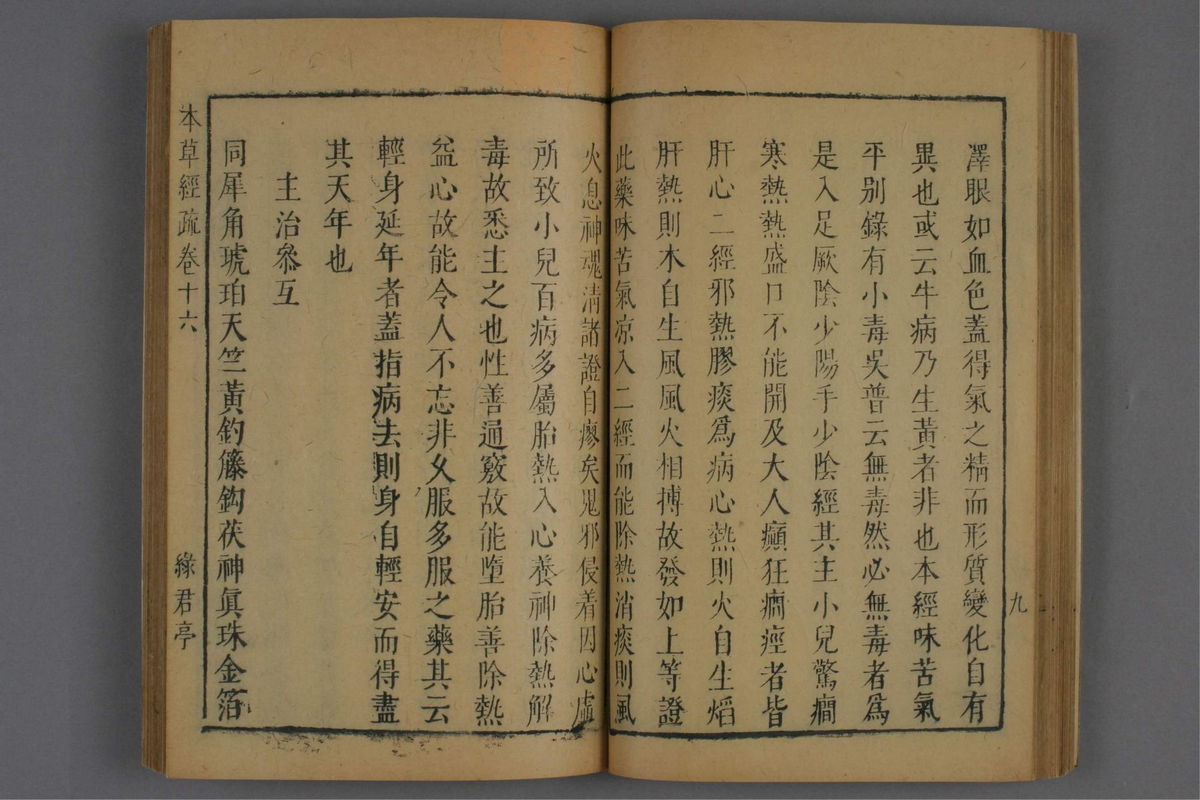 九
澤眼如血色蓋得氣之精而形質變化自有
異也或云牛病乃生黃者非也本經味苦氣
平別錄有小毒吳普云無毒然必無毒者爲
是入足厥陰少陽手少陰經其主小兒驚癇
寒熱熱盛口不能開及大人癲狂癇痙者皆
肝心二經邪熱膠痰爲病心熱則火自生焰
肝熱則木自生風風火相搏故發如上等證
此藥味苦氣凉入二經而能除熱消痰則風
火息神魂清諸證自瘳矣鬼邪侵着因心虛
所致小兒百病多屬胎熱入心養神除熱解
毒故悉主之也性善通竅故能墮胎善除熱
益心故能令人不忘非久服多服之藥其云
輕身延年者蓋指病去則身自輕安而得盡
其天年也
主治叅互
同犀角琥珀天竺黃釣籐鈎茯神眞珠金箔
本草經疏 卷十六
綠君亭